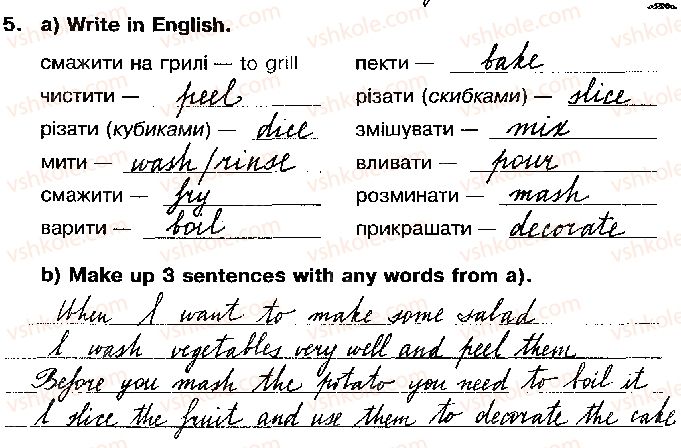 5. a) Write in English.
смажити на грилі — to grill пекти — bake
чистити — peel різати (скибками) — slice
різати (кубиками) — dice змішувати — mix
мити — wash/rinse вливати — pour
смажити — fry розминати — mash
варити — boil прикрашати — decorate
b) Make up 3 sentences with any words from a).
When I want to make some salad
I wash vegetables very well and peel them
Before you mash the potato you need to boil it
I slice the fruit and use them to decorate the cake